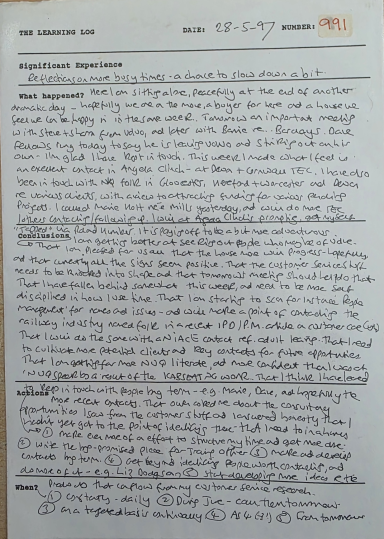 THE LEARNING LOG DATE: 28-5-97 NUMBER: 991
Significant Experience
Reflections on more busy times - a chance to slow down a bit.
What happened? Here I am sitting alone, peacefully at the end of another
dramatic day - hopefully we are a the move, a buyer for here and a house we
feel we can be happy in in the same week. Tomorrow an important meeting
with Steve + Shern from Volvo, and later with Barrie re... Barclays. Dave
Fellows rung today to say he is leaving Volvo and striking out on his
own - I'm glad I have kept in touch. This week I made what I feel is
an excellent contact in Angela Clinch - at Devon + Cornwall TEC. I have also
been in touch with folk in Gloucester, Hereford + Worcester and Devon
re various clients, with a view to attracting funding for various
Projects. I called Marie Holt nee Mill yesterday, and could do more TEC
/other contacting/follow up. I will at Angela Clinch's prompting, get myself
a Number. It is paying off to be a bit more adventurous.
Conclusions I am getting better at seeking out people who might be of value.
That I am pleased for Susan that the house move is in progress - hopefully
and that currently all the signs seem positive. That the customer service work
needs to be into shape and that tomorrow's meeting should help do that
That I have fallen behind somewhat this week, and need to be more self
disciplined in how I use time. That I am starting to scan for
for names and issues - and will make a point of contacting the
railway industry named folk in a recent IPD/P.M. article on customer care
That I will do the same with a NIACE contact ref. adult learning. That I need
to cultivate more potential clients and key contacts for future opportunities
That I am getting far more NVQ literate, and more confident that I was at
NVQ speak as a result of the work. That I think I have learned
to keep in touch with people long term - e.g. Marie, Dave, and hopefully the
Actions more recent contacts. That Owen asked me about the consultancy
opportunities I saw from the customer stuff and I answered honestly that I
hadn't yet got to the point of identifying these that I need to naturally
① make even more of an effort to structure my time and get more done
② write the long-promised piece for Training Officer ③ make and develop
contacts long term. ④ Get beyond identifying people worth contacting, and
do more of it - e.g. Liz Dodgson ⑤ Start developing more ideas re the
When? Products that can flow from my customer service research.
① Constantly - daily ② During June - can then tomorrow
③ On a targeted basis continually ④ As 4 (3!) ⑤ From tomorrow